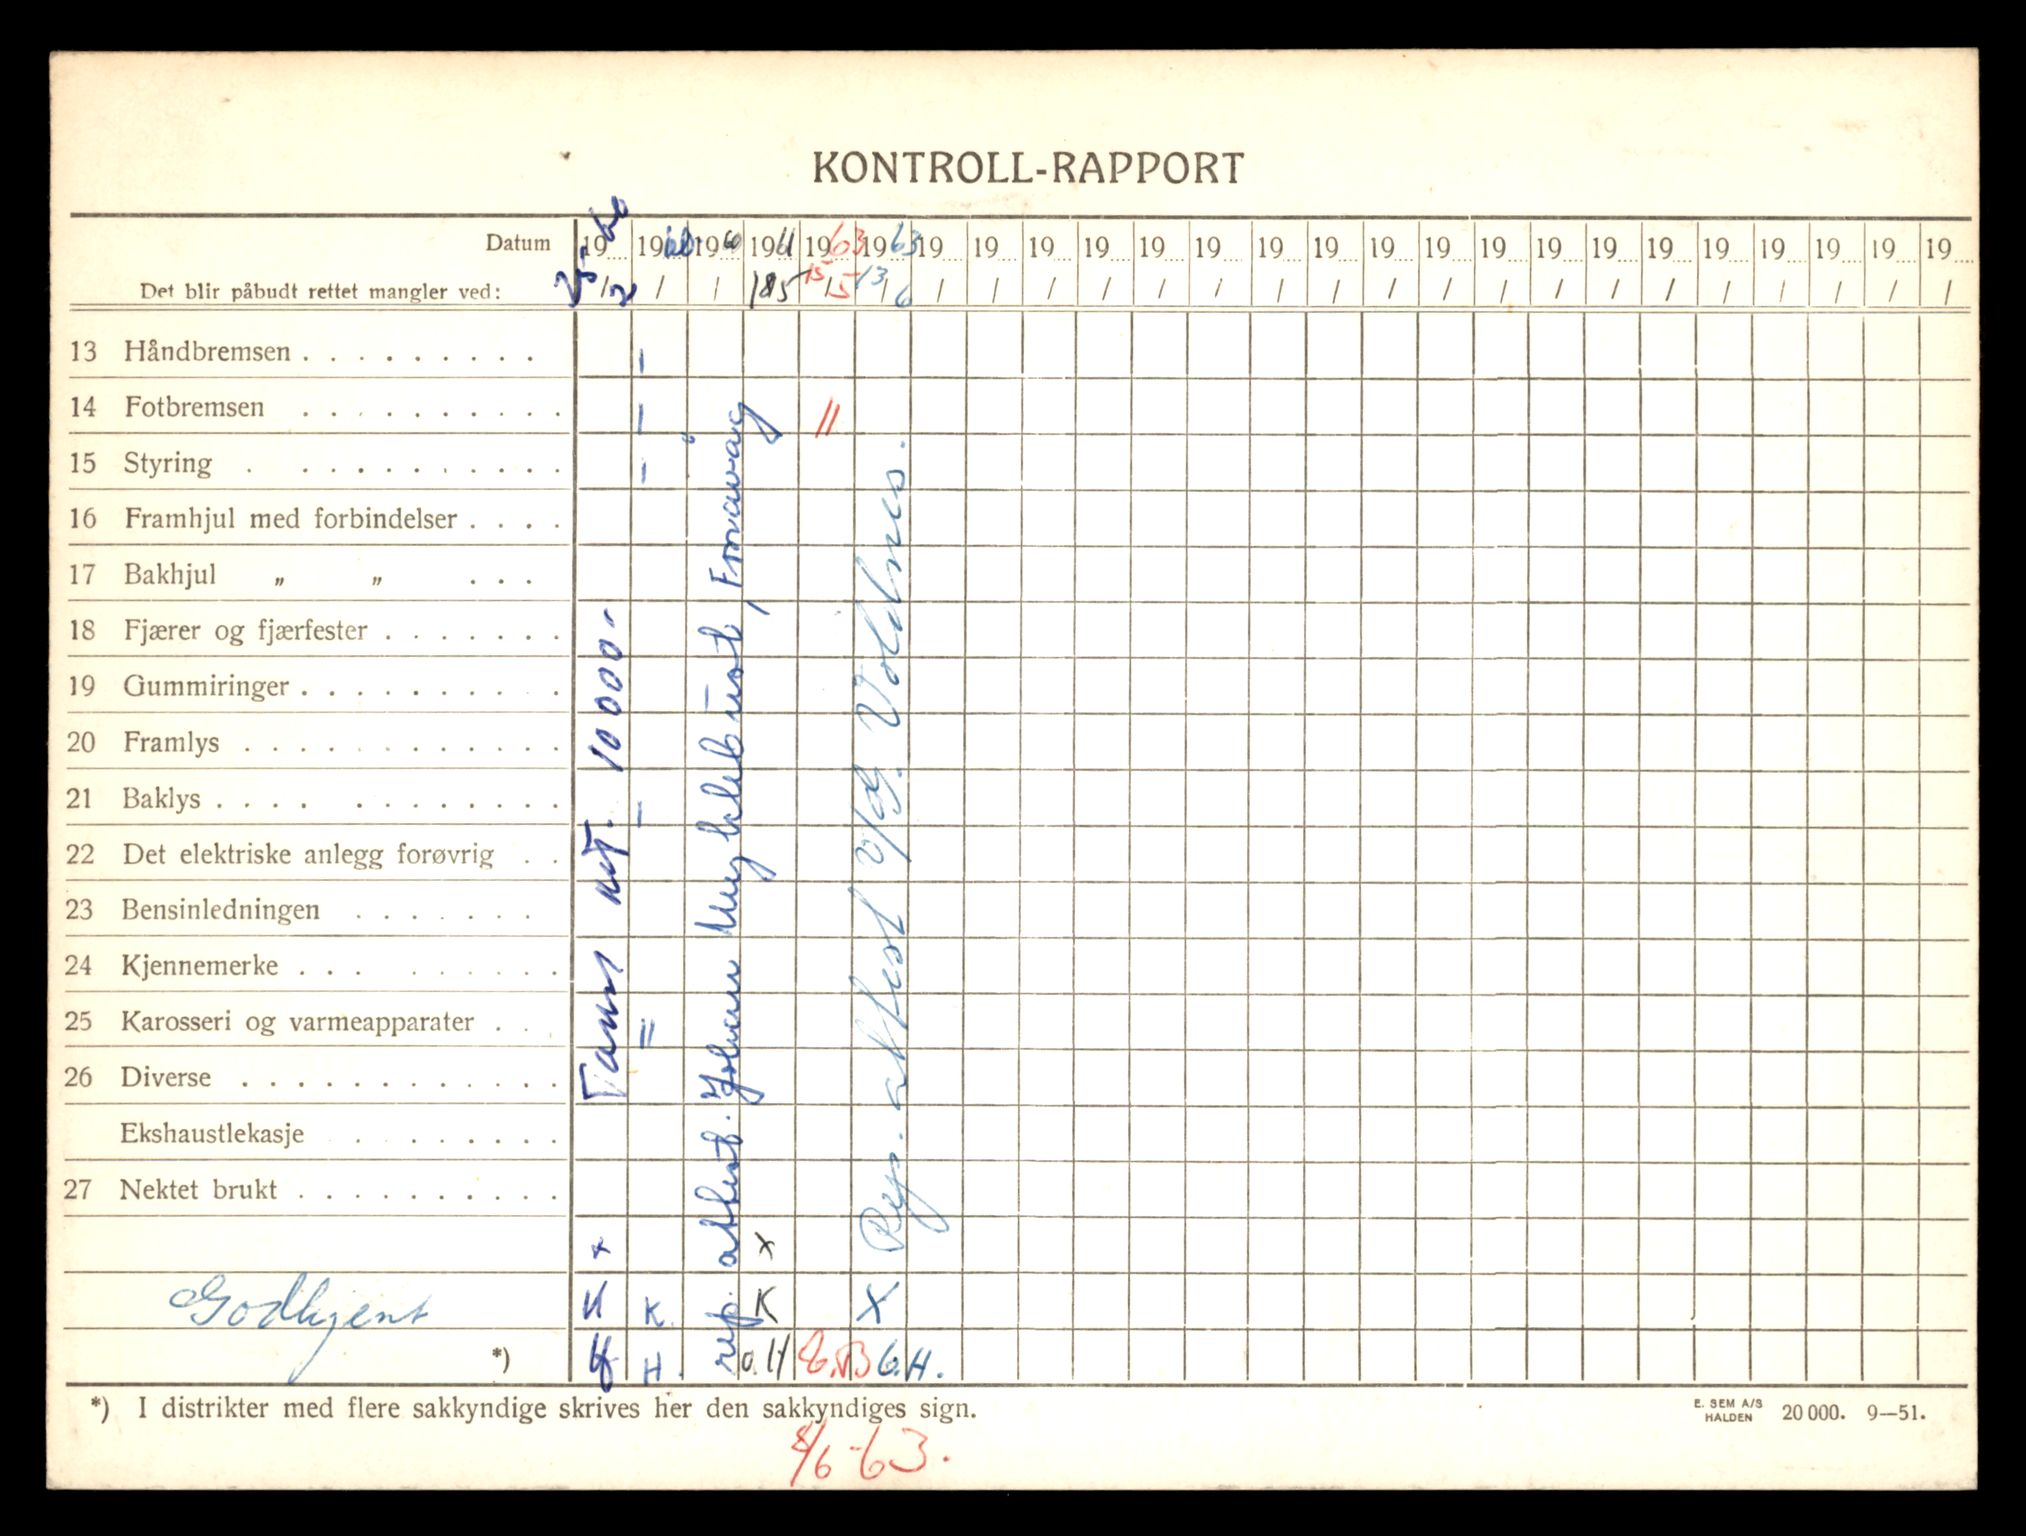 KONTROLL-RAPPORT
Datum 19 60 19 60 19 60 19 61 19 63 19 63 19 19 19 19 19 19 19 19 19 19 19 19 19 19 19 19 19 19 19
Det blir påbudt rettet mangler ved: 25/2 / / 18/5 15/5 13/6 / / / / / / / / / / / / / / / / / / /
13 Håndbremsen . . . . . . . . . I
14 Fotbremsen . . . . . . . . . . I II
15 Styring . . . . . . . . . . . I
16 Framhjul med forbindelser . . . .
17 Bakhjul „ „ . . .
18 Fjærer og fjærfester . . . . . . .
19 Gummiringer . . . . . . . . . .
20 Framlys . . . . . . . . . . . .
21 Baklys . . . . . . . . . . . . I
22 Det elektriske anlegg forøvrig . .
23 Bensinledningen . . . . . . .
24 Kjennemerke . . . . . . . . .
25 Karosseri og varmeapparater . . . II
26 Diverse . . . . . . . . . . . .
Ekshaustlekasje . . . . . . . .
27 Nektet brukt . . . . . . . . . .
x x
Godkjent K K. K X
*) H. O.H E.B O.H.
10000.-
rep. attest. Johan Myklebust, Fosnavåg
Rep. attest Voldnes.
*) I distrikter med flere sakkyndige skrives her den sakkyndiges sign.
E. SEM A/S
HALDEN 20 000. 9—51.
4/6-63.